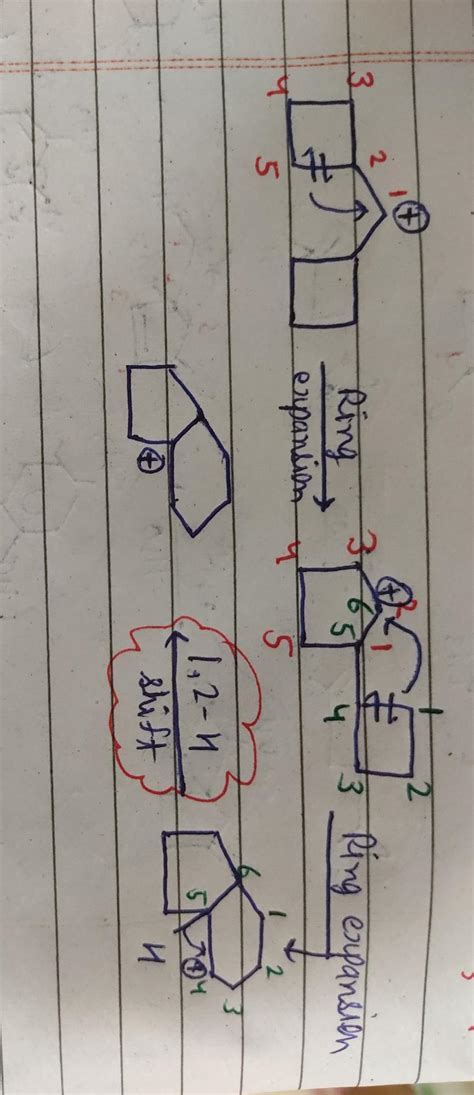 3
4
2
1
5
⊕
Ring
expansion
3
4
⊕
2
6
5
1
5
1
2
4
3
Ring expansion
6
1
2
5
⊕
4
3
H
1,2-H
shift
⊕